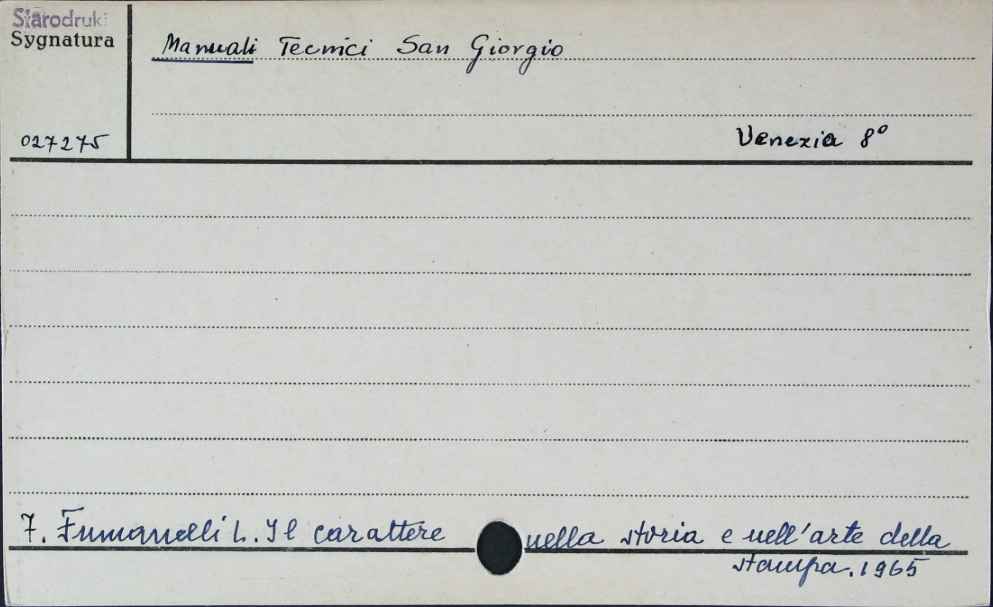 Starodruki
Sygnatura
Manuali Tecnici San Giorgio
027275
Venezia 8°
7. Fumanelli L. Il carattere nella storia e nell'arte della
stampa. 1965